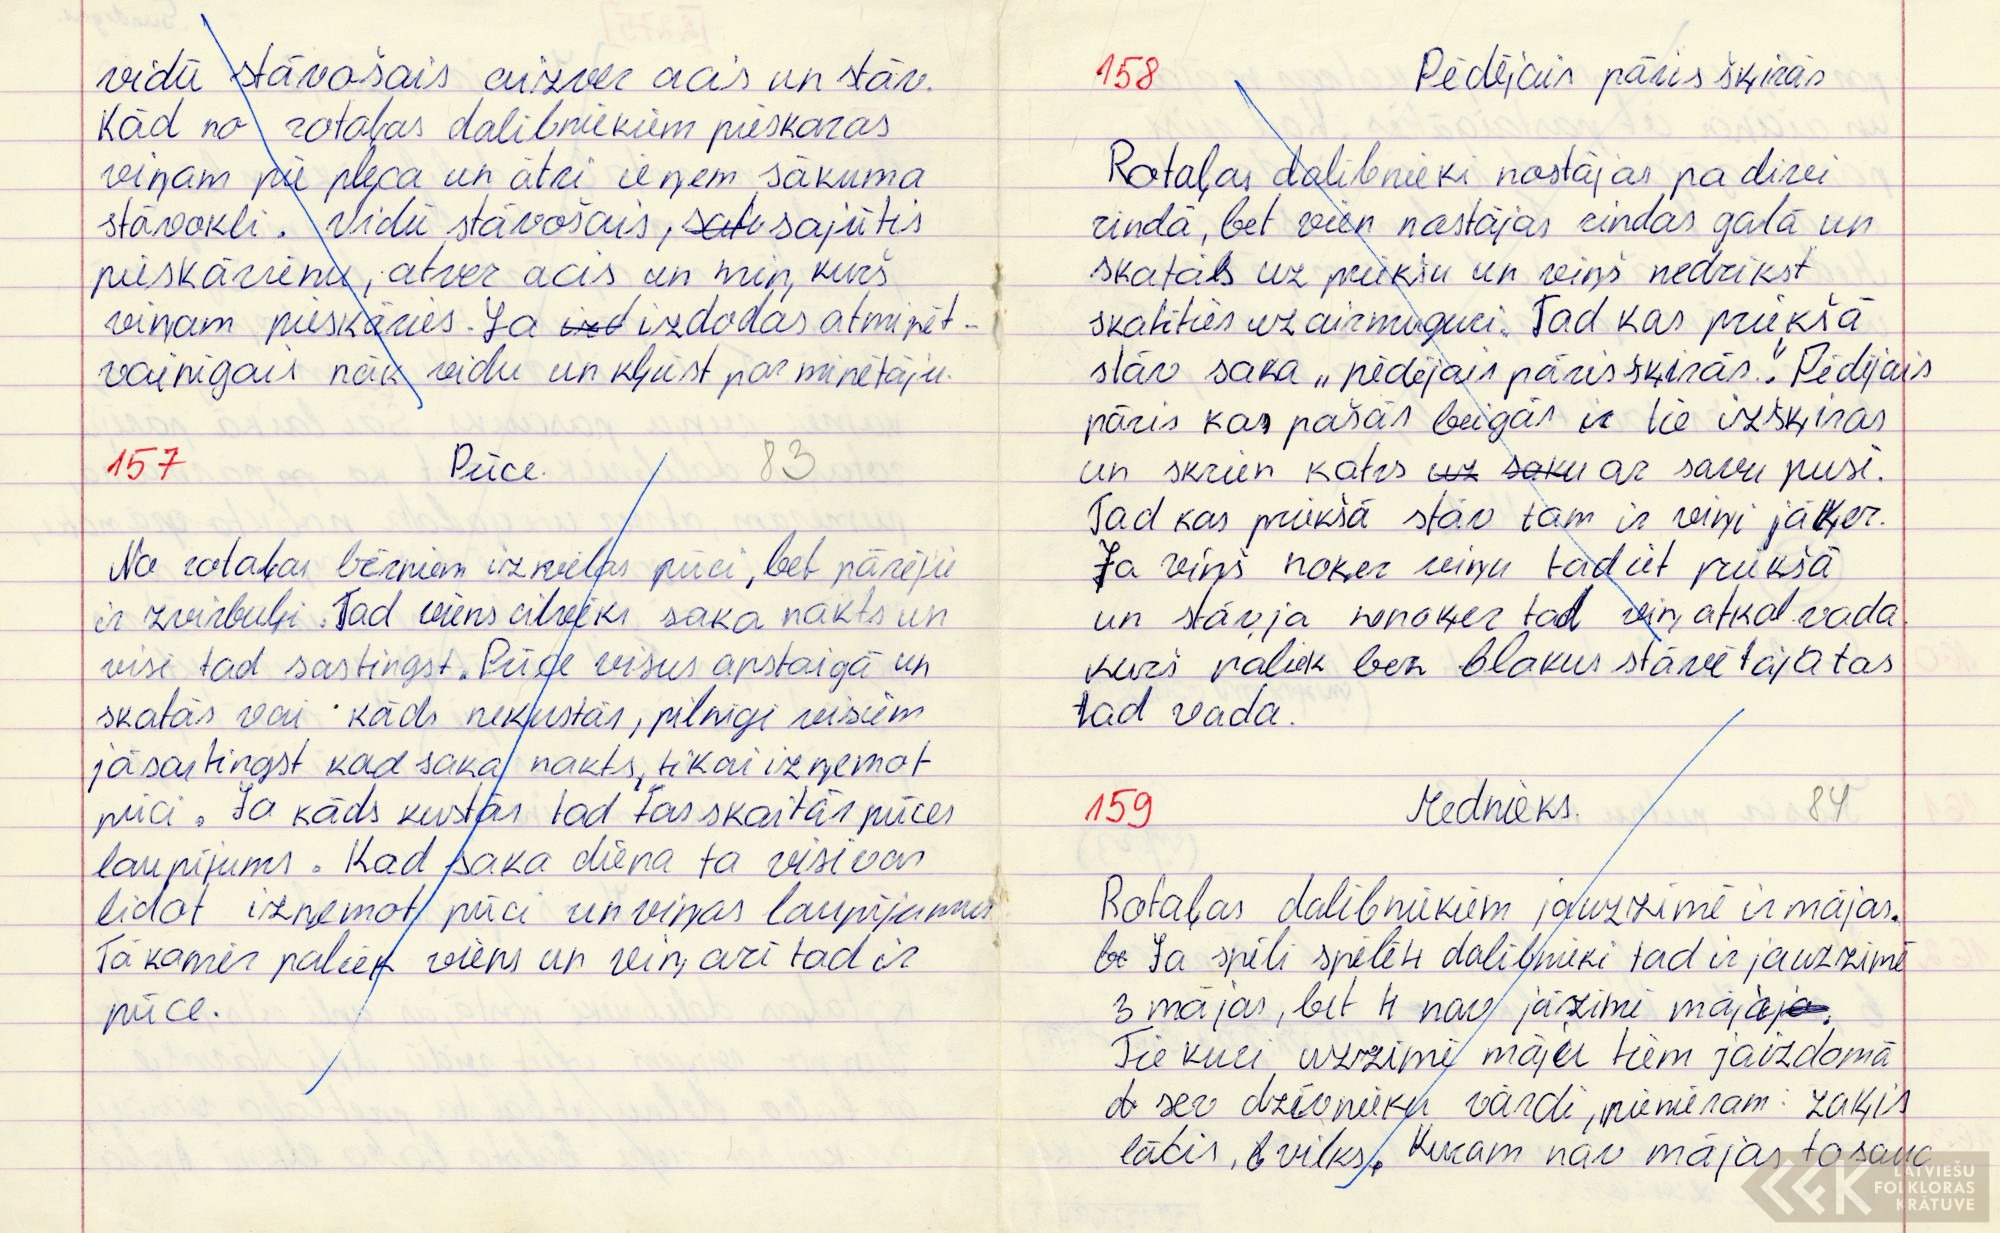 vidū stāvošais aizver acis un stāv.
Kād no rotaļas dalībniekiem pieskaras
viņam pie pleca un ātri ieņem sākuma
stāvokli. Vidū stāvošais, sajūtis
pieskārienu, atver acis un min, kurš
viņam pieskāries. Ja izdodas atminēt-
vainīgais nāk vidū un kļūst par minētāju.
157 Pūce. 83
No rotaļas bērniem izvēlas pūci, bet pārējie
ir zvirbuļi. Tad viens cilvēks saka nakts un
visi tad sastingst. Pūce visus apstaigā un
skatās vai kāds nekustās, pilnīgi visiem
jāsastingst kad saka nakts, tikai izņemot
pūci. Ja kāds kustās tad tas skaitās pūces
laupījums. Kad saka diena ta visi var
lidot izņemot pūci un viņas laupījumus
Tā kamēr paliek viens un viņ arī tad ir
pūce.
158 Pēdējais pāris šķirās
Rotaļas dalībnieki nostājas pa divi
rindā, bet vien nostājas rindas galā un
skatās uz priekšu un viņš nedrīkst
skatīties uz airmuguri. Tad kas priekšā
stāv saka „pēdējais pāris šķirās." Pēdējais
pāris kas pašās beigās ir tie izšķiras
un skrien katrs ar savu pusi.
Tad kas priekšā stāv tam ir viņi jāķer.
Ja viņš noķer viņu tad iet priekšā
un stāv, ja nenoķer tad viņ atkal vada.
kurš paliek bez blakus stāvētāja tas
tad vada.
159 Mednieks. 84
Rotaļas dalībniekiem jauzzīmē ir mājas.
Ja spēli spēlē 4 dalībnieki tad ir jauzzīmē
3 mājas, bet 4 nav jāzīmē māja.
Tie kuri uzzīmē māju tiem jāizdomā
sev dzīvnieku vārdi, piemēram: zaķis
lācis, vilks. Kuram nav mājas to sauc
LATVIEŠU
FOLKLORAS
KRĀTUVE